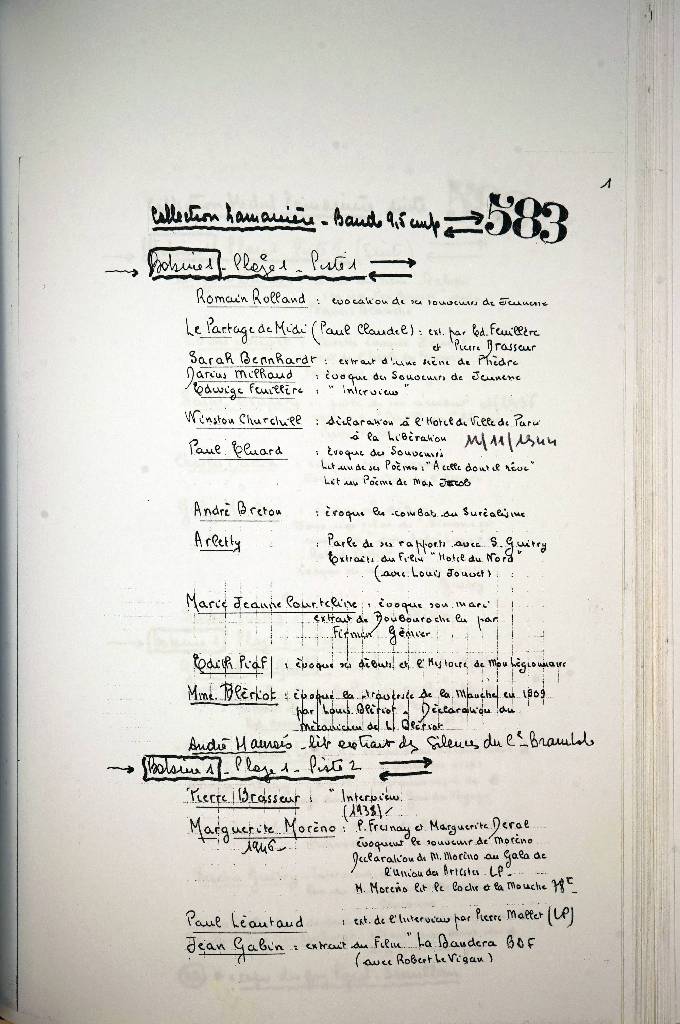 1
Collection Lamanière - Bande 9,5 cmps 583
Bobine 1 - Plage 1 - Piste 1
Romain Rolland : évocation de ses souvenirs de Jeunesse
Le Partage de Midi (Paul Claudel) : ext. par Ed. Feuillère
et Pierre Brasseur
Sarah Bernhardt : extrait d'une scène de Phèdre
Darius Milhaud : évoque des Souvenirs de Jeunesse
Edwige Feuillère : "Interview"
Winston Churchill : Déclaration à l'Hotel de Ville de Paris
à la Libération 11/11/1944
Paul Eluard : Evoque des Souvenirs
Lit un de ses Poèmes : "A celle dont il rêve"
Lit un Poème de Max Jacob
André Breton : évoque les combats du Suréalisme
Arletty : Parle de ses rapports avec S. Guitry
Extraits du Film "Hotel du Nord"
(avec Louis Jouvet)
Marie Jeanne Courteline : évoque son mari
extrait de Boubouroche lu par
Firmin Gémier
Edith Piaf : évoque ses débuts et l'Histoire de Mon Légionnaire
Mme. Blériot : évoque la traversée de la Manche en 1909
par Louis Blériot - Déclaration du
Mécanicien de L. Blériot
André Maurois - lit extrait des Silences du Cel Bramble
Bobine 1 - Plage 1 - Piste 2
Pierre Brasseur : "Interview
(1938)
Marguerite Moréno : P. Fresnay et Marguerite Deval
1946 - évoquent le souvenir de Moréno
Déclaration de M. Moréno au Gala de
l'Union des Artistes LP -
M. Moréno lit le Coche et la Mouche 78T
Paul Léautaud : ext. de l'Interview par Pierre Mallet (LP)
Jean Gabin : extrait du Film "La Bandera BOF
(avec Robert Le Vigan)